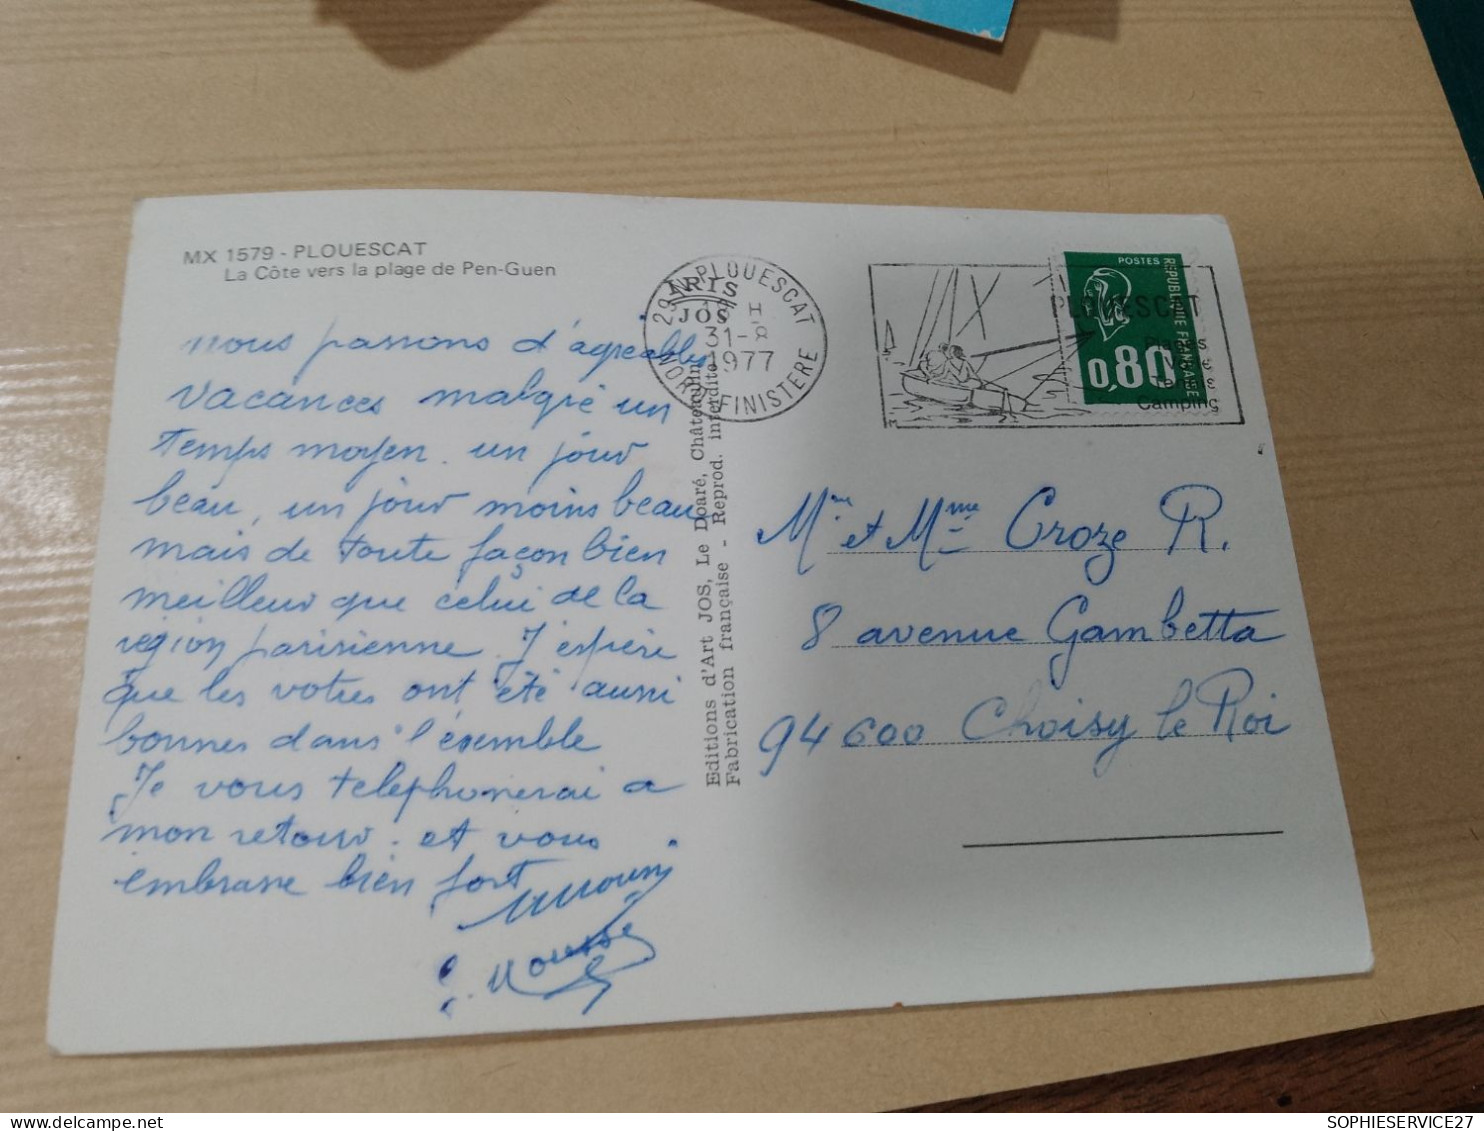 MX 1579 - PLOUESCAT
La Côte vers la plage de Pen-Guen
nous passons d'agréables
vacances malgré un
temps moyen. un jour
beau, un jour moins beau
mais de toute façon bien
meilleur que celui de la
région parisienne. J'espère
que les votres ont été aussi
bonnes dans l'ésemble
Je vous telephonerai a
mon retour. et vous
embrasse bien fort
Editions d'Art JOS, Le Doaré, Châteaulin
Fabrication française - Reprod. interdite
ARTS
JOS
29 N PLOUESCAT
31-8
1977
NORD FINISTERE
PLOUESCAT
Plages
Voile
Tennis
Camping
POSTES
REPUBLIQUE FRANCAISE
0,80
Mr et Mme Croze R.
8 avenue Gambetta
94600 Choisy le Roi
SOPHIESERVICE27